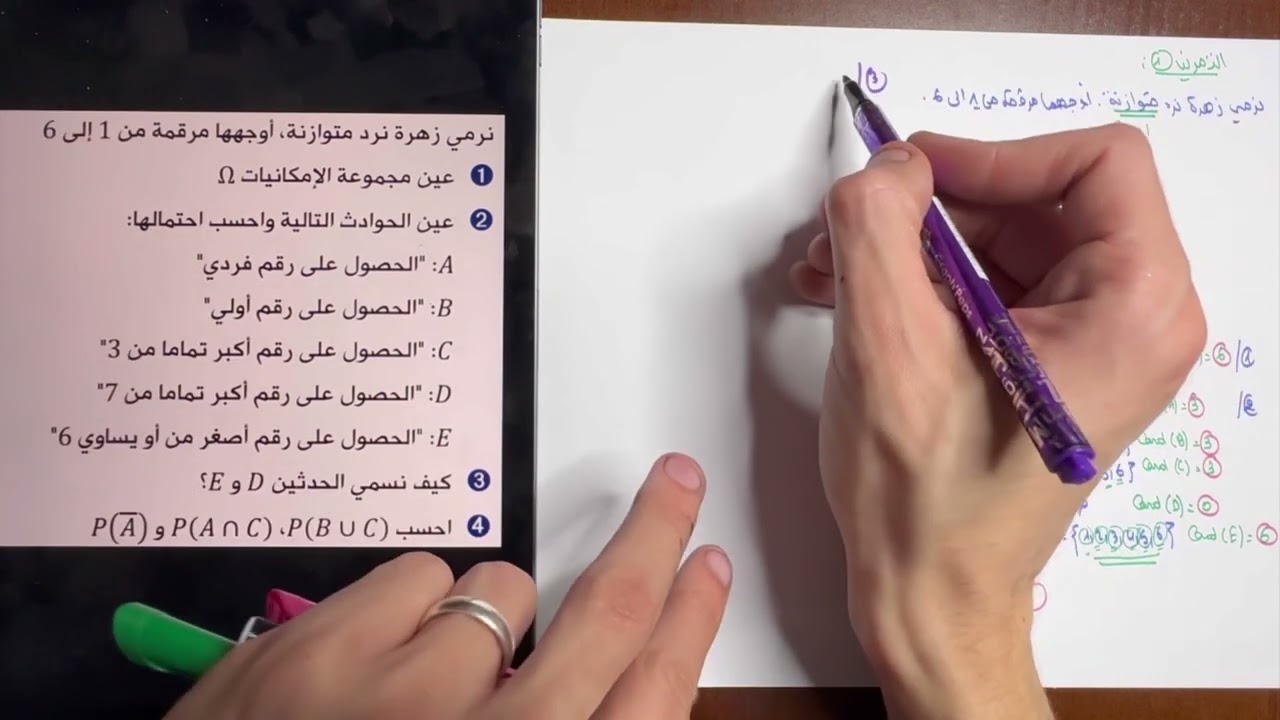 نرمي زهرة نرد متوازنة، أوجهها مرقمة من 1 إلى 6
1 عين مجموعة الإمكانيات Ω
2 عين الحوادث التالية واحسب احتمالها:
A: "الحصول على رقم فردي"
B: "الحصول على رقم أولي"
C: "الحصول على رقم أكبر تماما من 3"
D: "الحصول على رقم أكبر تماما من 7"
E: "الحصول على رقم أصغر من أو يساوي 6"
3 كيف نسمي الحدثين D و E؟
4 احسب P(B ∪ C)، P(A ∩ C) و P(A̅)
التمرين 1:
نرمي زهرة نرد متوازنة. أوجهها مرقمة من 1 الى 6.
3/
= 6 /1
= 3 /2
Card (B) = 3
6} Card (C) = 3
Card (D) = 0
{1,2,3,4,5,6} Card (E) = 6